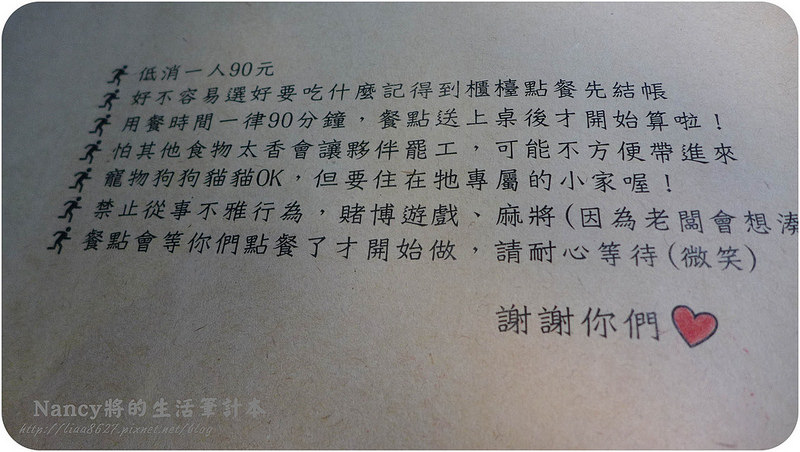 低消一人90元
好不容易選好要吃什麼記得到櫃檯點餐先結帳
用餐時間一律90分鐘，餐點送上桌後才開始算啦！
怕其他食物太香會讓夥伴罷工，可能不方便帶進來
寵物狗狗貓貓OK，但要住在牠專屬的小家喔！
禁止從事不雅行為，賭博遊戲、麻將(因為老闆會想湊
餐點會等你們點餐了才開始做，請耐心等待(微笑)
謝謝你們
Nancy將的生活筆計本
http://liaa8627.pixnet.net/blog